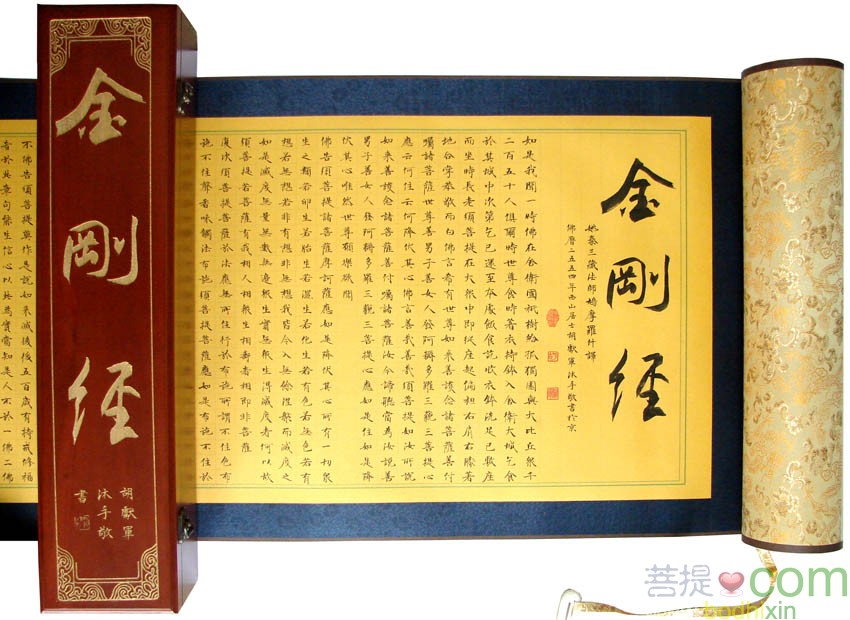 金剛經
姚秦三藏法師鳩摩羅什譯
佛曆二五五四年西山居士胡獻軍沐手敬書於京
如是我聞一時佛在舍衛國祇樹給孤獨園與大比丘眾千
二百五十人俱爾時世尊食時著衣持鉢入舍衛大城乞食
於其城中次第乞已還至本處飯食訖收衣鉢洗足已敷座
而坐時長老須菩提在大眾中即從座起偏袒右肩右膝著
地合掌恭敬而白佛言希有世尊如來善護念諸菩薩善付
囑諸菩薩世尊善男子善女人發阿耨多羅三藐三菩提心
應云何住云何降伏其心佛言善哉善哉須菩提如汝所說
如來善護念諸菩薩善付囑諸菩薩汝今諦聽當為汝說善
男子善女人發阿耨多羅三藐三菩提心應如是住如是降
伏其心唯然世尊願樂欲聞
佛告須菩提諸菩薩摩訶薩應如是降伏其心所有一切眾
生之類若卵生若胎生若濕生若化生若有色若無色若有
想若無想若非有想非無想我皆令入無餘涅槃而滅度之
如是滅度無量無數無邊眾生實無眾生得滅度者何以故
須菩提若菩薩有我相人相眾生相壽者相即非菩薩
復次須菩提菩薩於法應無所住行於布施所謂不住色布
施不住聲香味觸法布施須菩提菩薩應如是布施不住於
金剛經
胡獻軍
沐手敬
書
不佛告須菩提莫作是說如來滅後後五百歲有持戒修福
者於此章句能生信心以此為實當知是人不於一佛二佛
菩提com
bodhixin